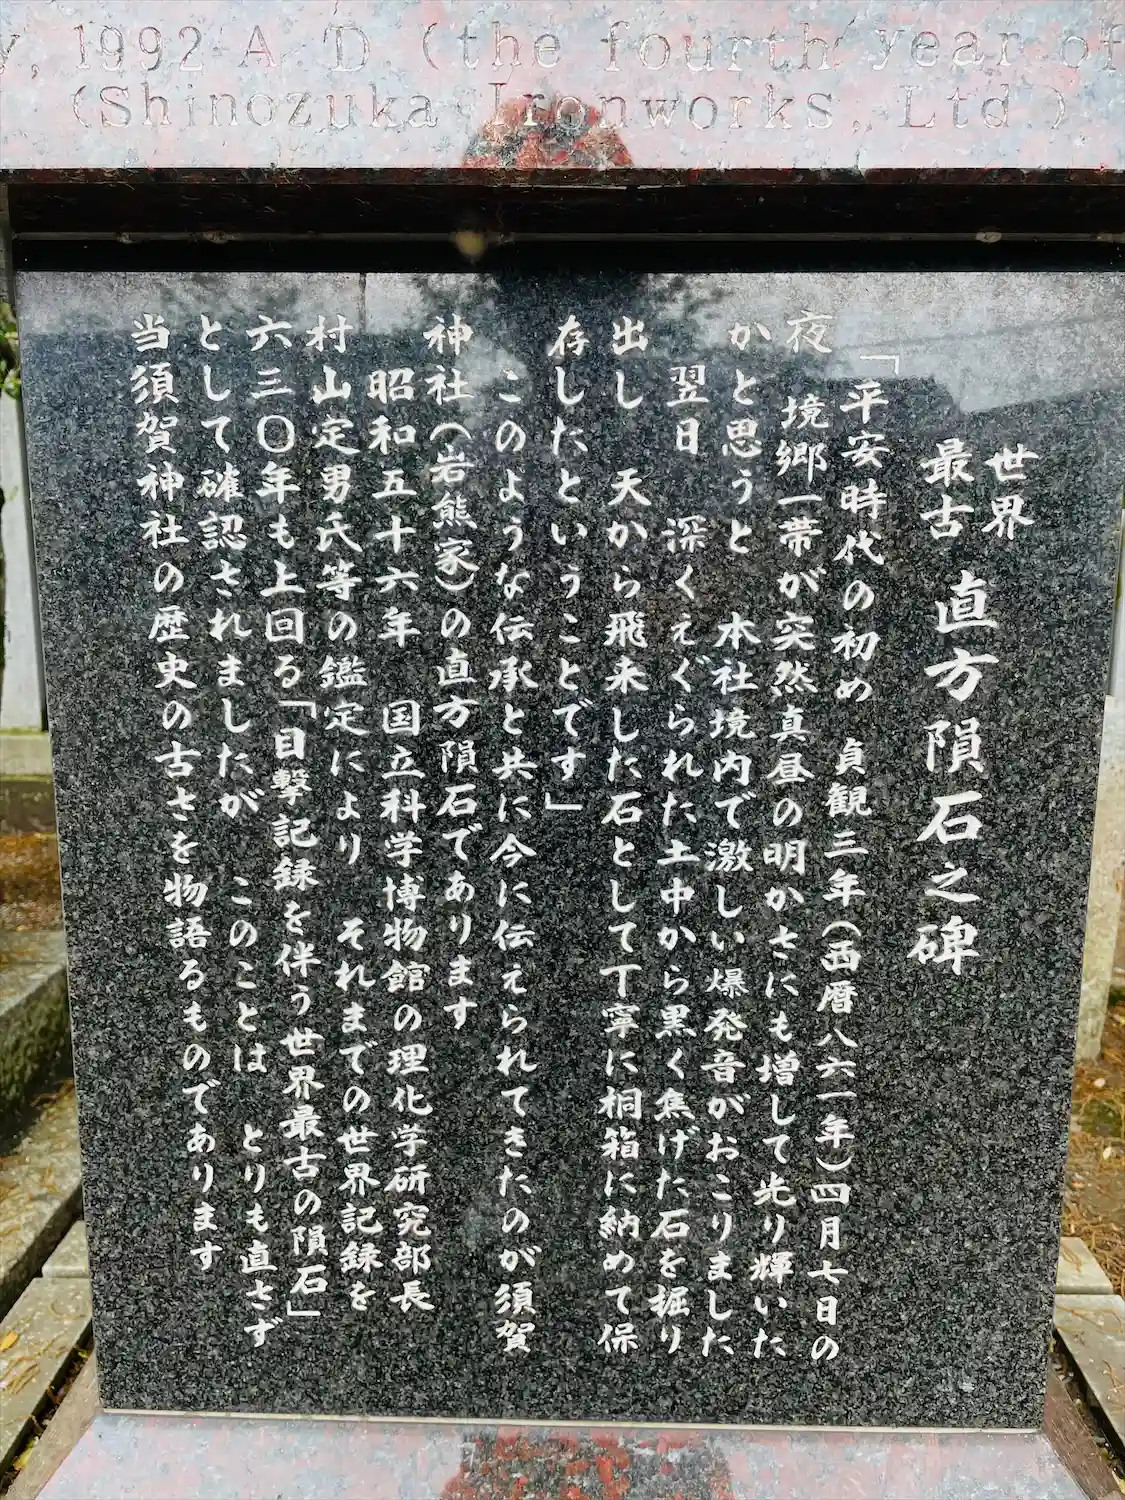 , 1992 A D (the fourth year of
(Shinozuka Ironworks, Ltd)
世界
最古 直方隕石之碑
「平安時代の初め 貞観三年(西暦八六一年)四月七日の
夜 境郷一帯が突然真昼の明かさにも増して光り輝いた
かと思うと 本社境内で激しい爆発音がおこりました
翌日 深くえぐられた土中から黒く焦げた石を掘り
出し 天から飛来した石として丁寧に桐箱に納めて保
存したということです」
このような伝承と共に今に伝えられてきたのが須賀
神社(岩熊家)の直方隕石であります
昭和五十六年 国立科学博物館の理化学研究部長
村山定男氏等の鑑定により それまでの世界記録を
六三〇年も上回る「目撃記録を伴う世界最古の隕石」
として確認されましたが このことは とりも直さず
当須賀神社の歴史の古さを物語るものであります